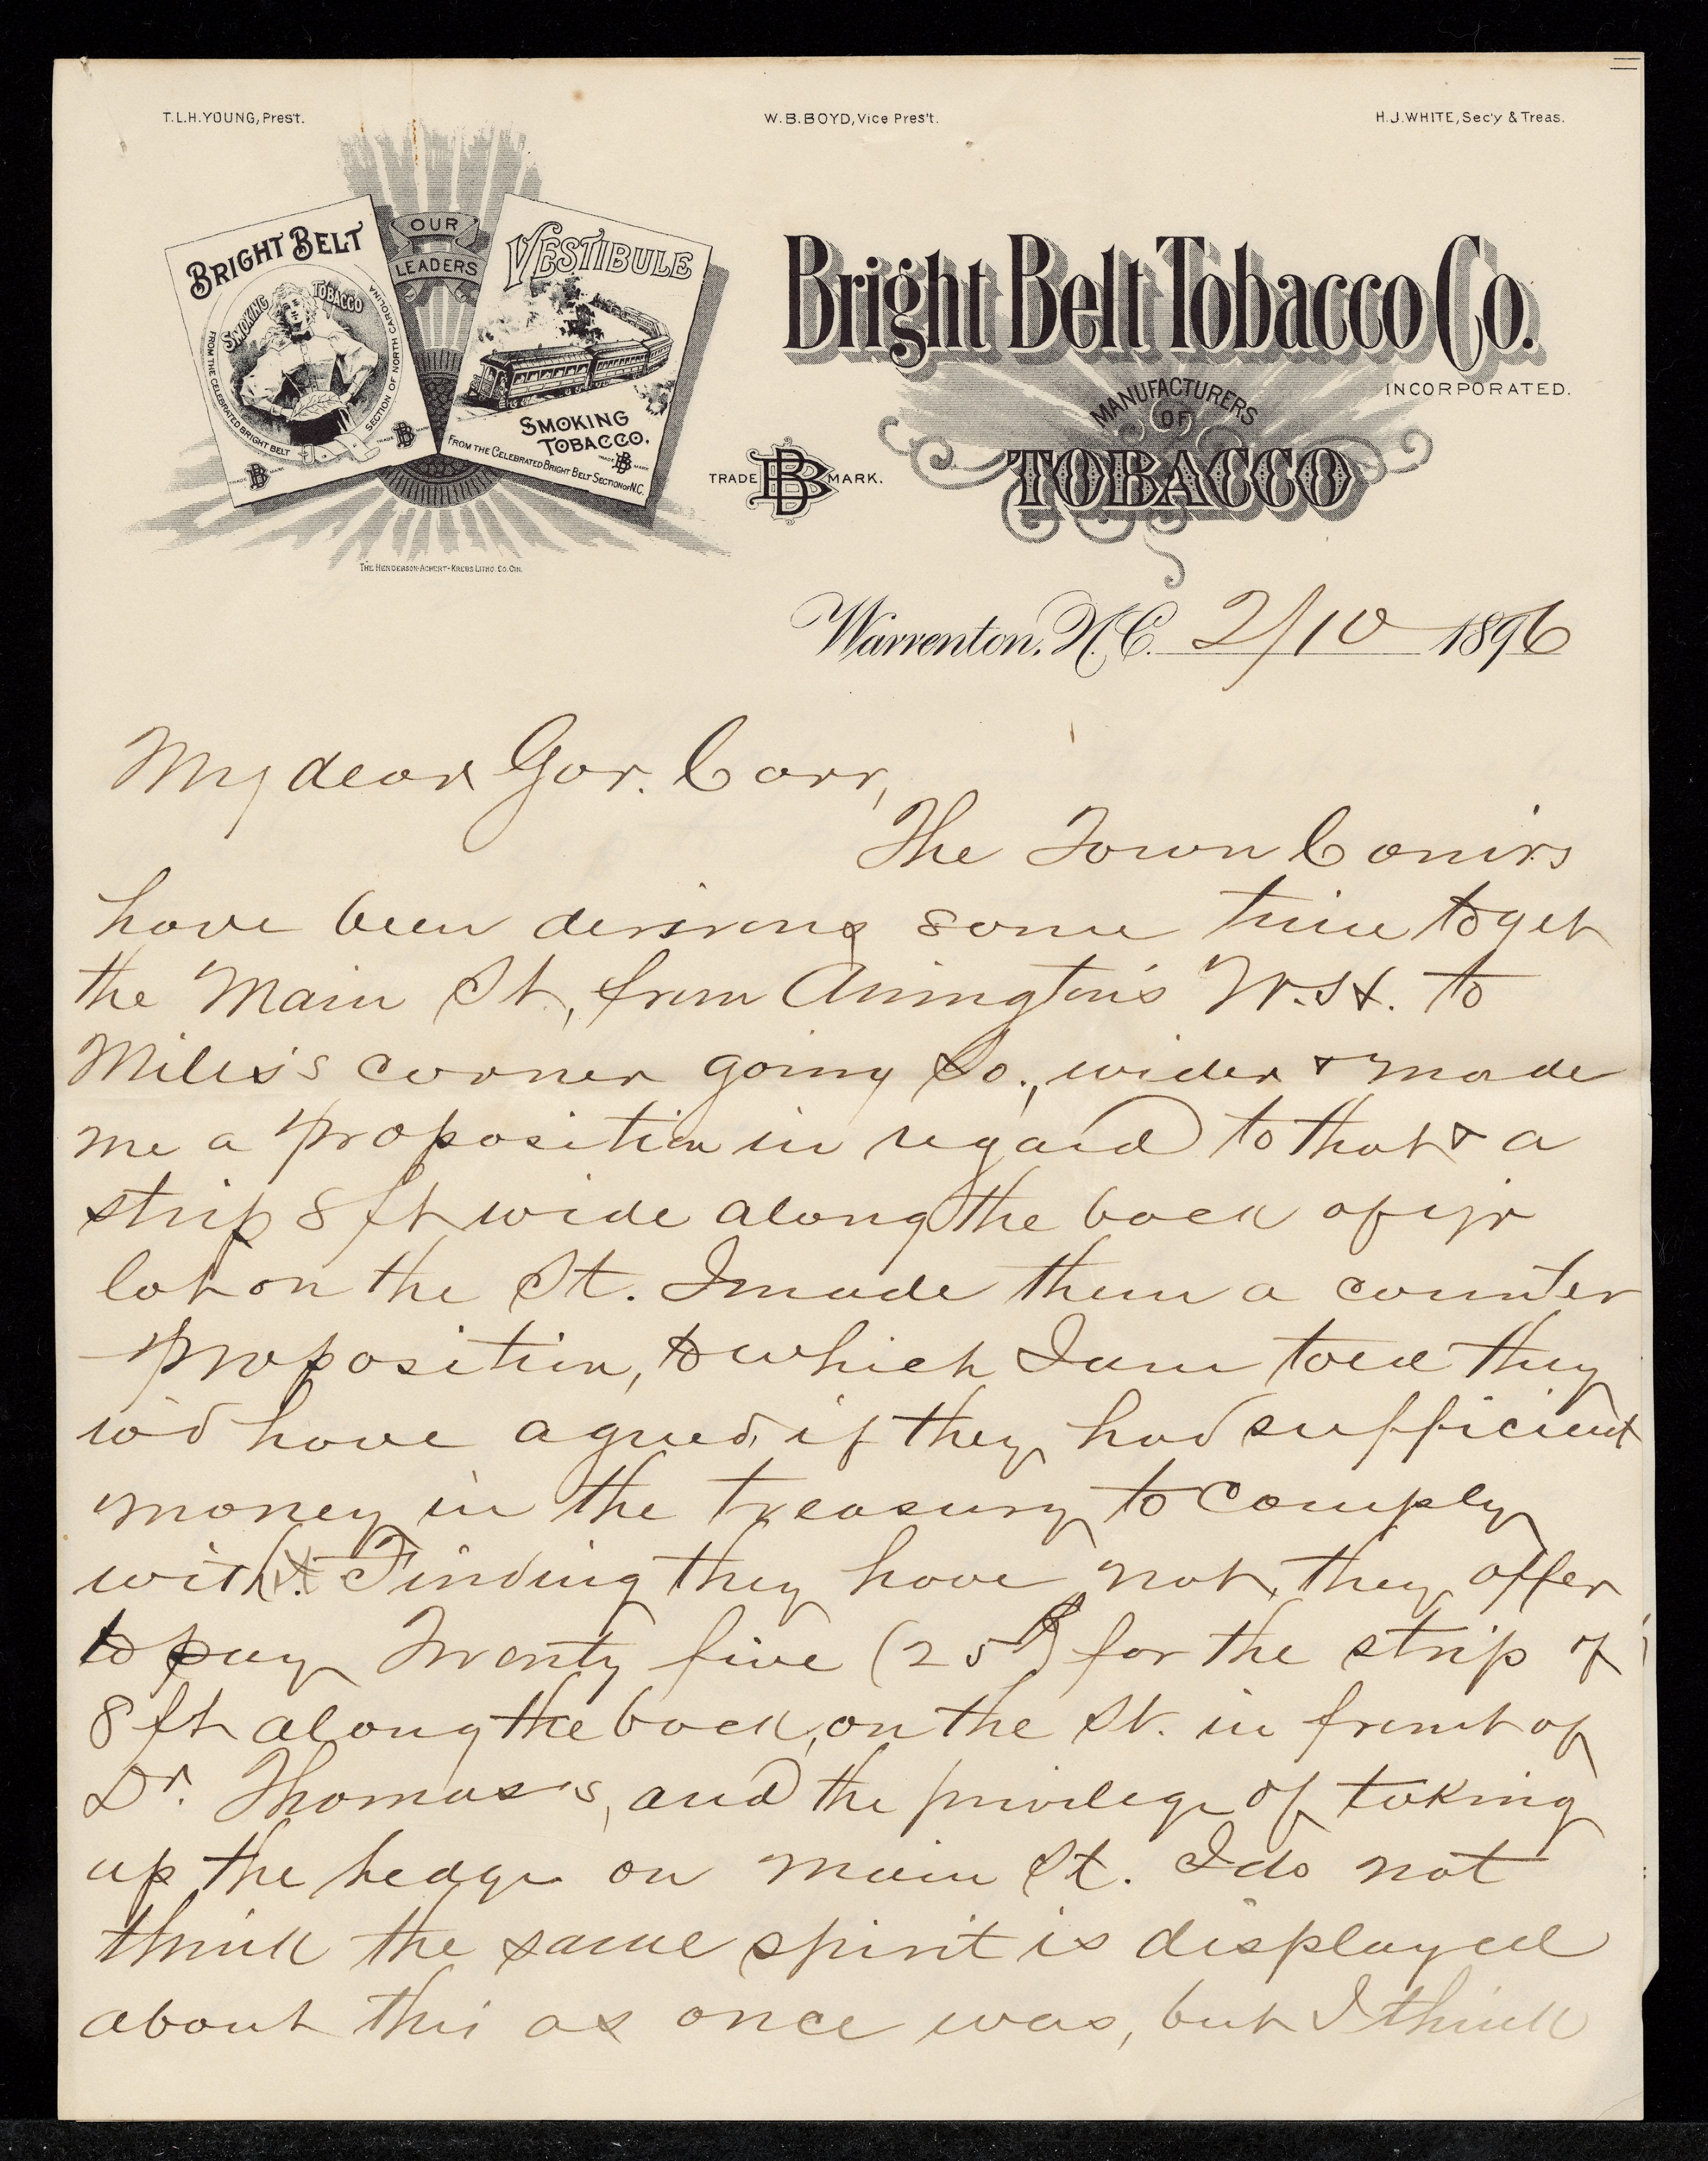 T.L.H. YOUNG, Pres't.
W.B. BOYD, Vice Pres't.
H.J. WHITE, Sec'y & Treas.
BRIGHT BELT
SMOKING TOBACCO
FROM THE CELEBRATED BRIGHT BELT SECTION OF NORTH CAROLINA
TRADE BB MARK
BB
OUR
LEADERS
VESTIBULE
SMOKING
TOBACCO.
TRADE BB MARK
FROM THE CELEBRATED BRIGHT BELT SECTION OF N.C.
THE HENDERSON-ACHERT-KREBS LITHO. CO. CIN.
Bright Belt Tobacco Co.
INCORPORATED.
MANUFACTURERS
OF
TOBACCO
TRADE BB MARK.
Warrenton, N.C. 2/10 1896
My dear Gov. Carr,
The Town Com'rs
have been desirous some time to get
the Main St, from Arrington's W.H. to
Miles's corner going So., wider & made
me a proposition in regard to that & a
strip 8 ft wide along the back of yr
lot on the St. I made them a counter
proposition, to which I am told they
w'd have agreed, if they had sufficient
money in the treasury to comply
with. Finding they have not, they offer
to pay Twenty five (25$) for the strip of
8 ft along the back, on the St. in front of
Dr. Thomas's, and the privilege of taking
up the hedge on main St. I do not
think the same spirit is displayed
about this as once was, but I think